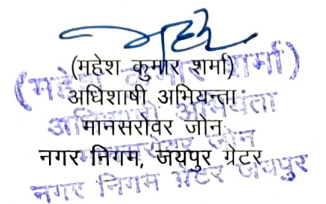 (महेश कुमार शर्मा)
अधिशाषी अभियन्ता
मानसरोवर जोन
नगर निगम, जयपुर ग्रेटर
(महेश कुमार शर्मा)
अधिशाषी अभियंता
मानसरोवर जोन
नगर निगम ग्रेटर जयपुर